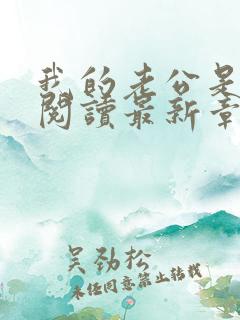 我的老公是
閱讀最新章
吴劲松
未经同意禁止转载